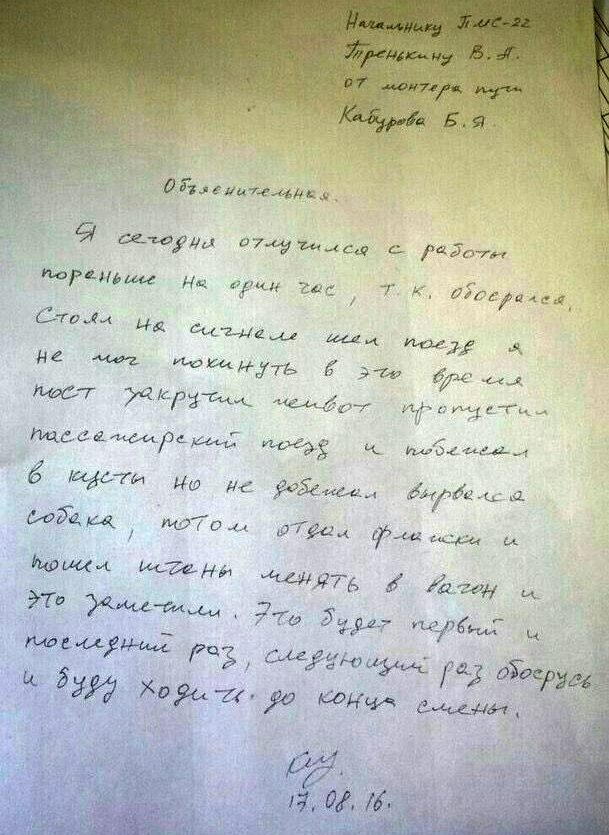 Начальнику ПМС-22
Тренькину В.А.
от монтера пути
Кабурова Б.Я.
Объяснительная.
Я сегодня отлучился с работы
пораньше на один час, т.к. обосрался.
Стоял на сигнале шел поезд я
не мог покинуть в это время
пост закрутил живот пропустил
пассажирский поезд и побежал
в кусты но не добежал вырвался
собака, потом отдал флажки и
пошел штаны менять в вагон и
это заметили. Это будет первый и
последний раз, следующий раз обосрусь
и буду ходить до конца смены.
17.08.16.